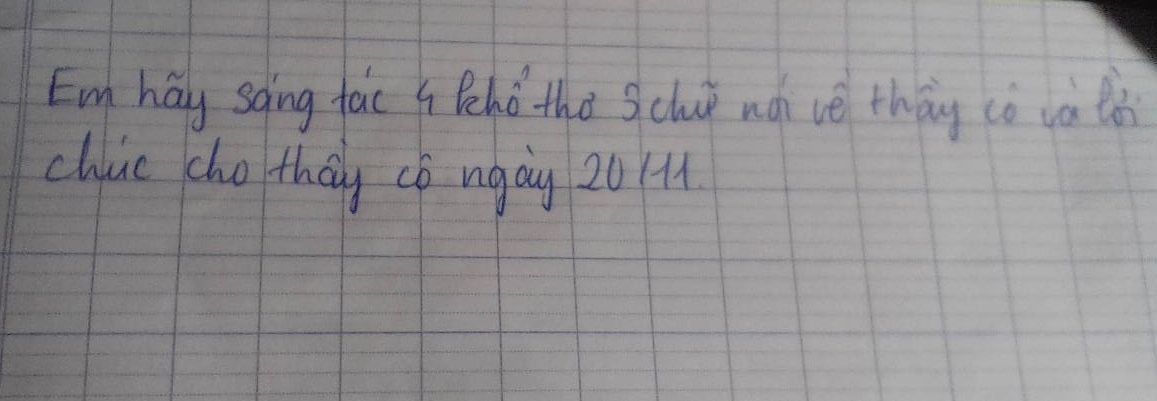 Em hãy sáng tác 4 khổ thơ 5 chữ nói về thầy cô và lời
chúc cho thầy cô ngày 20/11.